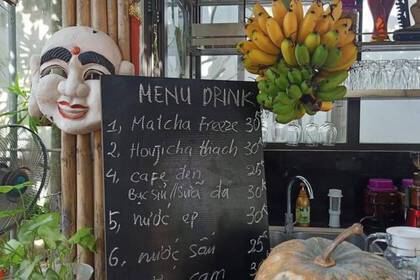 MENU DRINK
1, Matcha Freeze 30
2. Houjicha thạch 30
4. cafe đen 25
Bạc Sỉu//Sữa đá 30
5, nước ép 30
6. nước sấm 25
cam